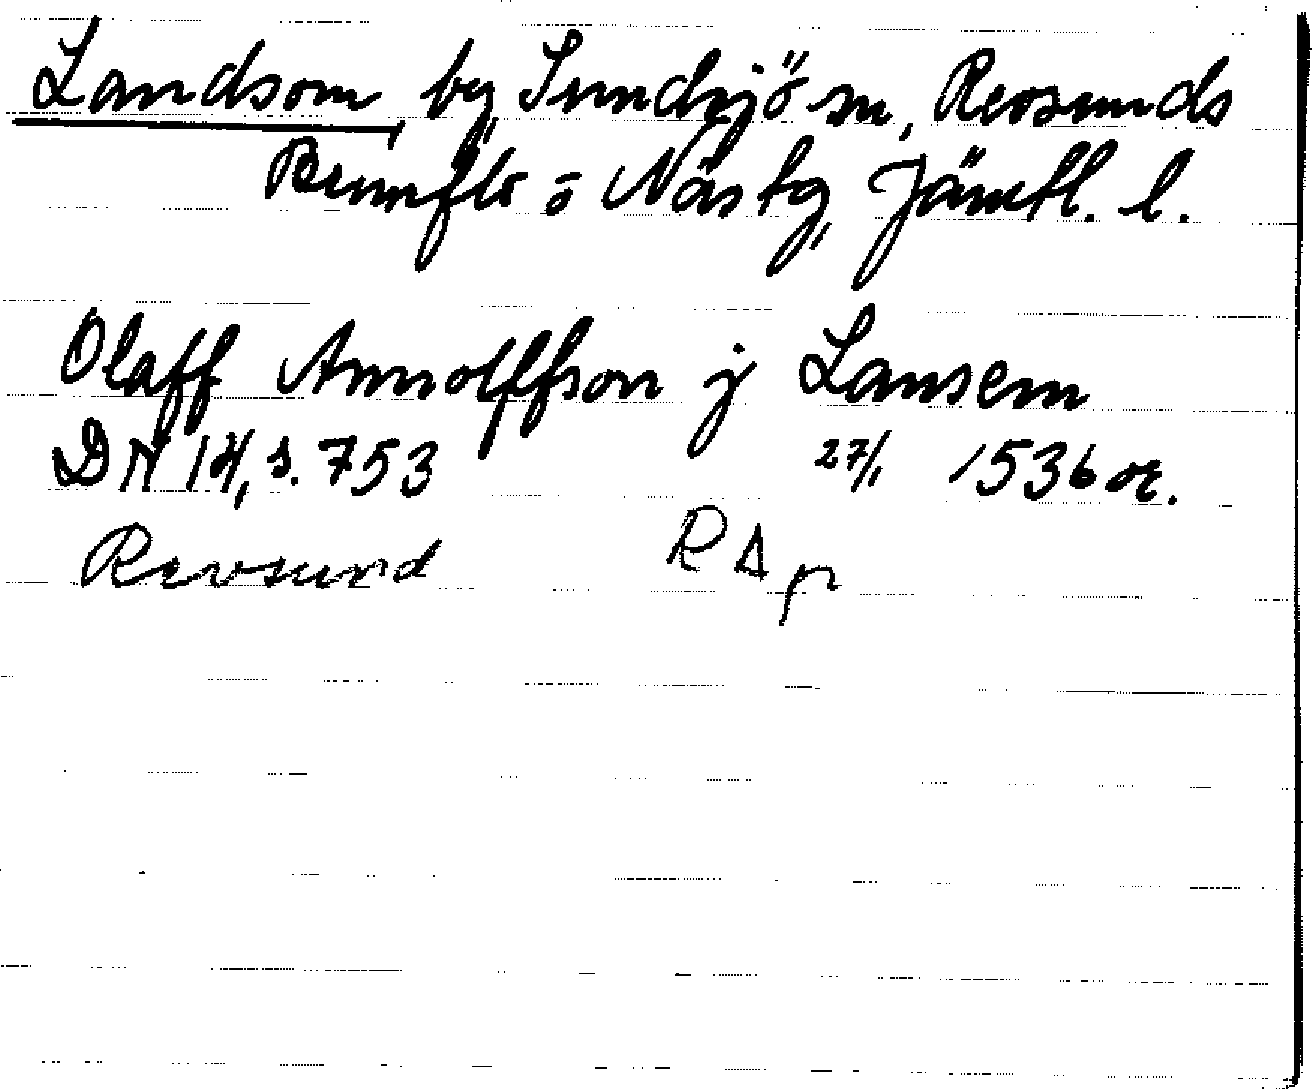 Landsom, by, Sundsjö sn, Revsunds
Brunflo o Näs tg, Jämtl. l.
Olaff Annolffson j Lansem
DN 14, s. 753 27/1 1536 or.
Revsund RA p